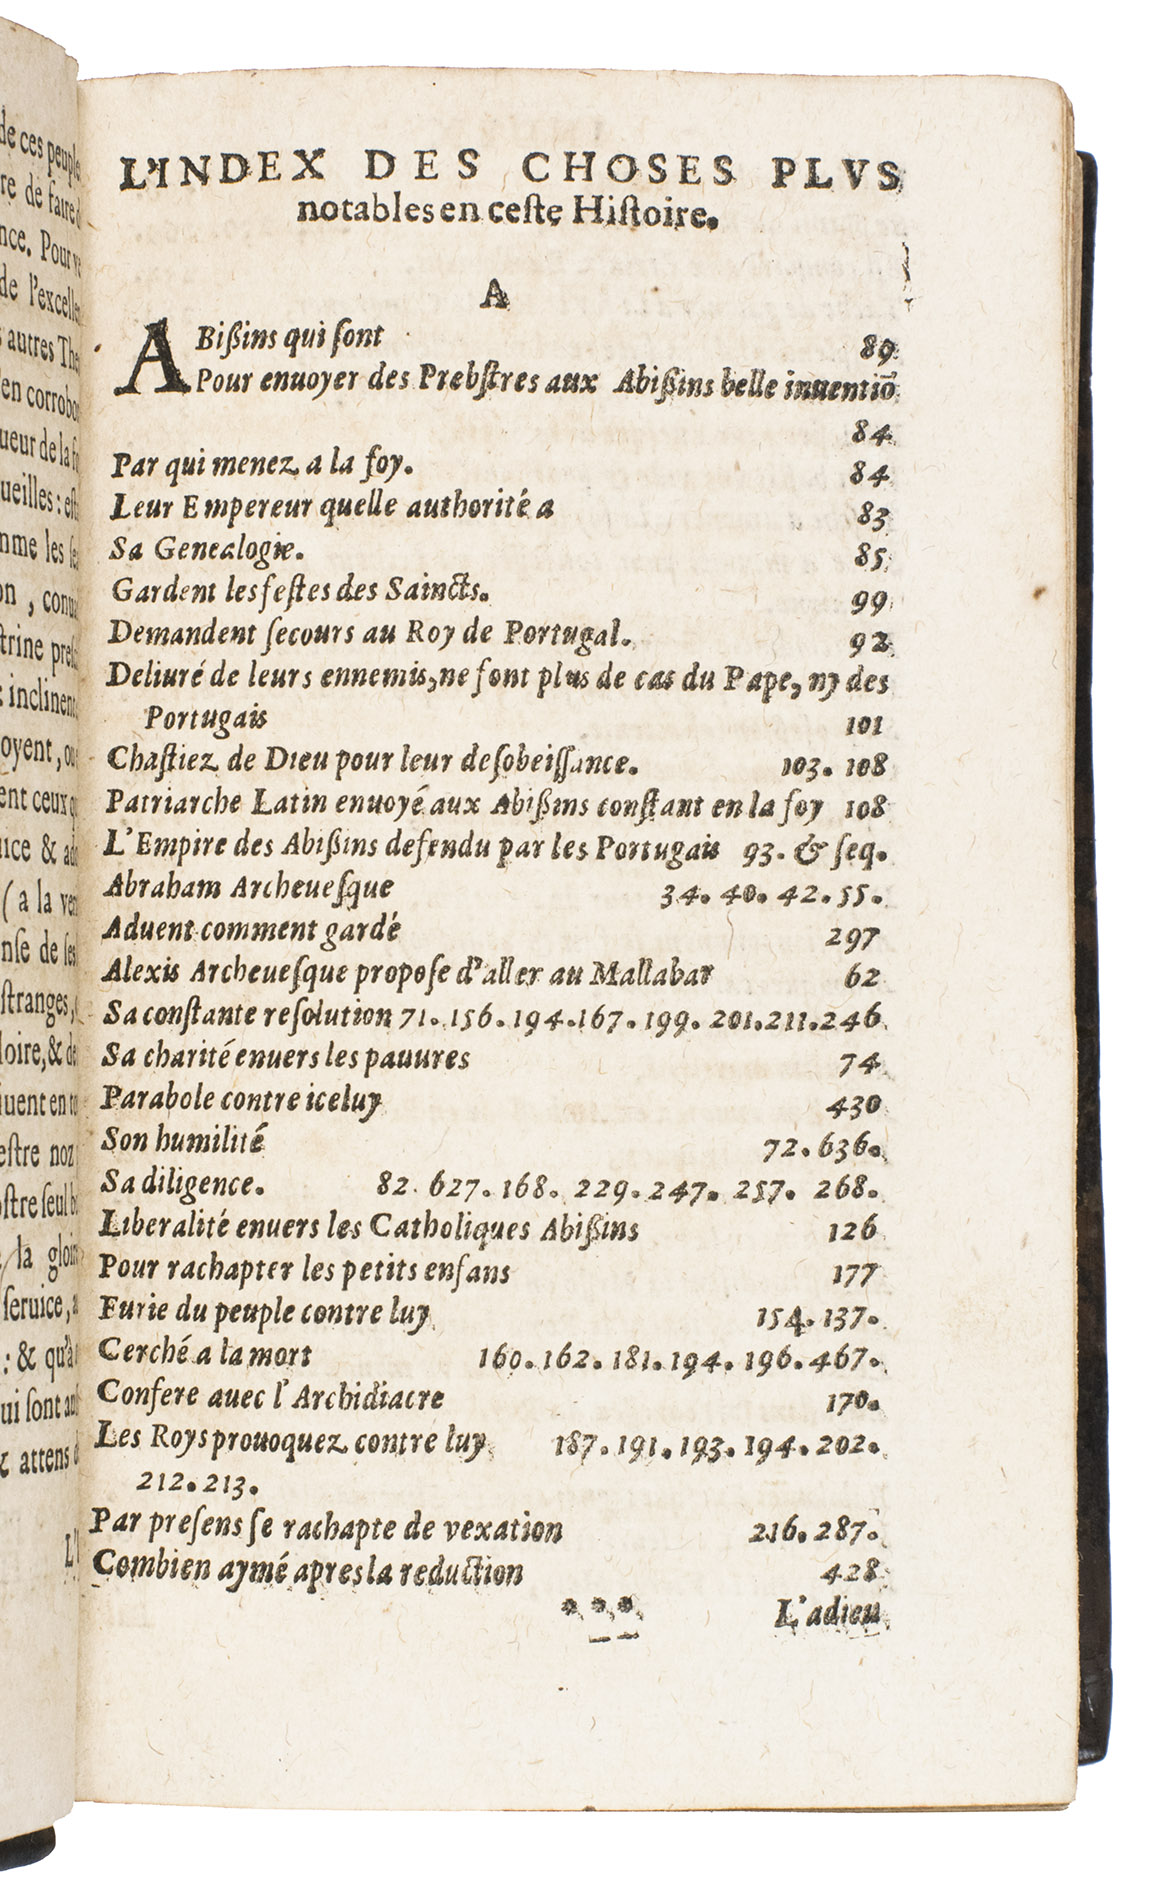 de ces peuple
re de faire
nce. Pour
de l'excelle
autres The
en corrobo
ueur de la
ueilles: est
mme les
on, conu
trine pres
inclinent
oyent, ou
ent ceux q
uce & ad
(a la ver
nse de ses
stranges,
loire, & de
iuent en
estre noz
ostre seul
la gloi
seruice,
: & qu'à
ui sont
& attens d
L'INDEX DES CHOSES PLVS
notables en ceste Histoire.
A
ABißins qui sont 89
Pour enuoyer des Prebstres aux Abißins belle inuentiõ
84
Par qui menez a la foy. 84
Leur Empereur quelle authorité a 83
Sa Genealogie. 85
Gardent les festes des Saincts. 99
Demandent secours au Roy de Portugal. 92
Deliuré de leurs ennemis, ne font plus de cas du Pape, ny des
Portugais 101
Chastiez de Dieu pour leur desobeissance. 103. 108
Patriarche Latin enuoyé aux Abißins constant en la foy 108
L'Empire des Abißins defendu par les Portugais 93. & seq.
Abraham Archeuesque 34. 40. 42. 55.
Aduent comment gardé 297
Alexis Archeuesque propose d'aller au Mallabar 62
Sa constante resolution 71. 156. 194. 167. 199. 201. 211. 246
Sa charité enuers les pauures 74
Parabole contre iceluy 430
Son humilité 72. 636.
Sa diligence. 82. 627. 168. 229. 247. 257. 268.
Liberalité enuers les Catholiques Abißins 126
Pour rachapter les petits enfans 177
Furie du peuple contre luy 154. 137.
Cerché a la mort 160. 162. 181. 194. 196. 467.
Confere auec l'Archidiacre 170.
Les Roys prouoquez contre luy 187. 191. 193. 194. 202.
212. 213.
Par presens se rachapte de vexation 216. 287.
Combien aymé apres la reduction 428
*** L'adieu